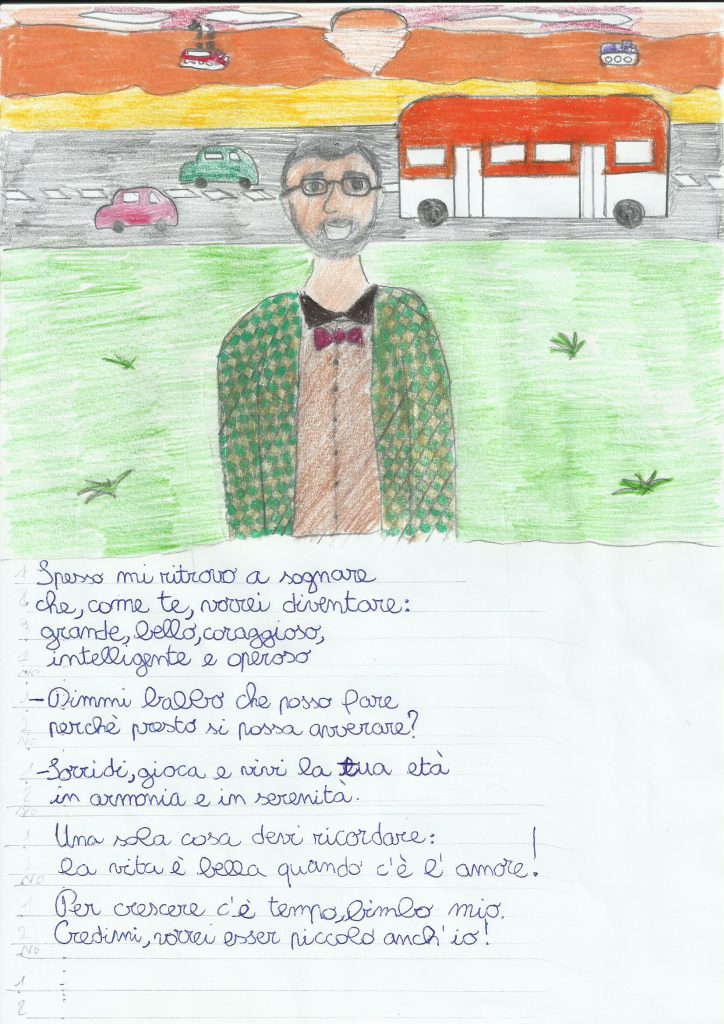 1 Spesso mi ritrovo a sognare
2 che, come te, vorrei diventare:
3 grande, bello, coraggioso,
4 intelligente e operoso
NO
1 - Dimmi babbo che posso fare
2 perchè presto si possa avverare?
NO
1 - Sorridi, gioca e vivi la tua età
2 in armonia e in serenità.
NO
1 Una sola cosa devi ricordare:
2 la vita è bella quando c'è l'amore!
NO
1 Per crescere c'è tempo, bimbo mio.
2 Credimi, vorrei esser piccolo anch'io!
NO
1
2